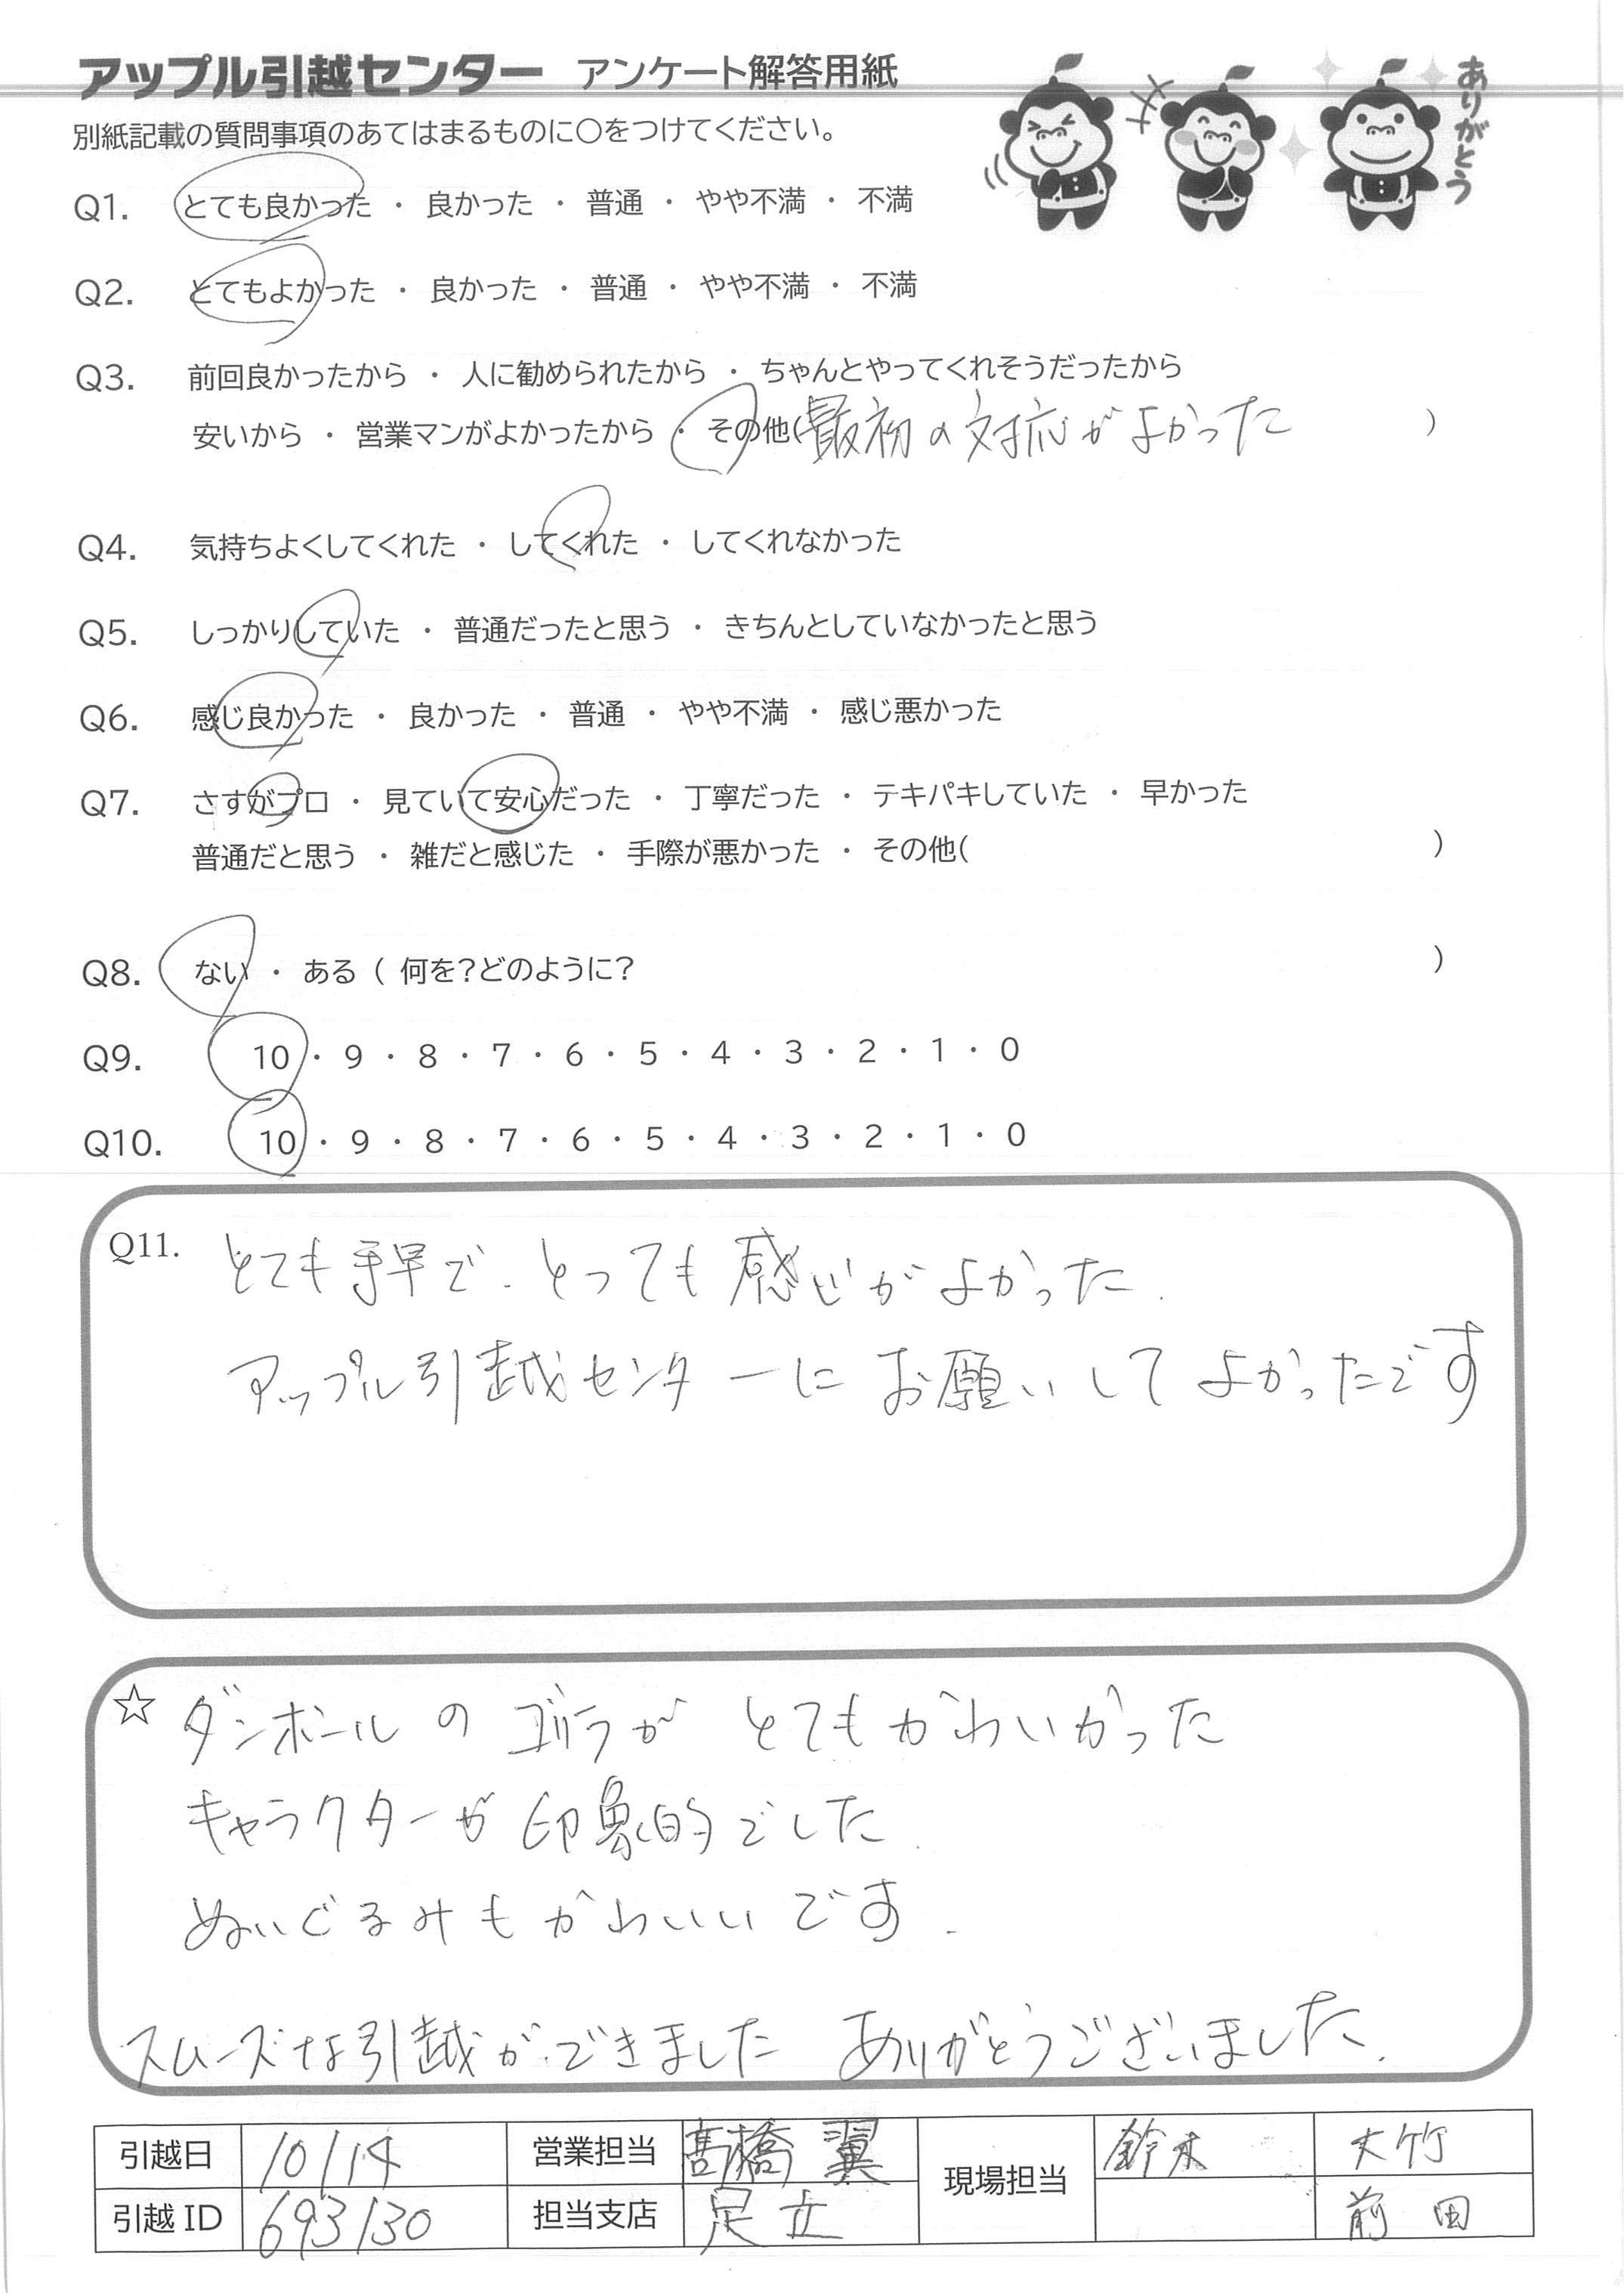 アップル引越センター アンケート解答用紙
ありがとう
別紙記載の質問事項のあてはまるものに○をつけてください。
Q1. とても良かった ・ 良かった ・ 普通 ・ やや不満 ・ 不満
Q2. とてもよかった ・ 良かった ・ 普通 ・ やや不満 ・ 不満
Q3. 前回良かったから ・ 人に勧められたから ・ ちゃんとやってくれそうだったから
安いから ・ 営業マンがよかったから ・ その他(最初の対応がよかった )
Q4. 気持ちよくしてくれた ・ してくれた ・ してくれなかった
Q5. しっかりしていた ・ 普通だったと思う ・ きちんとしていなかったと思う
Q6. 感じ良かった ・ 良かった ・ 普通 ・ やや不満 ・ 感じ悪かった
Q7. さすがプロ ・ 見ていて安心だった ・ 丁寧だった ・ テキパキしていた ・ 早かった
普通だと思う ・ 雑だと感じた ・ 手際が悪かった ・ その他( )
Q8. ない ・ ある ( 何を?どのように? )
Q9. 10 ・ 9 ・ 8 ・ 7 ・ 6 ・ 5 ・ 4 ・ 3 ・ 2 ・ 1 ・ 0
Q10. 10 ・ 9 ・ 8 ・ 7 ・ 6 ・ 5 ・ 4 ・ 3 ・ 2 ・ 1 ・ 0
Q11. とても手早で、とっても感じがよかった.
アップル引越センターにお願いしてよかったです
☆ ダンボールのゴリラがとてもかわいかった
キャラクターが印象的でした.
ぬいぐるみもかわいいです.
スムーズな引越ができました ありがとうございました.
引越日 10/14 営業担当 髙橋 翼 現場担当 鈴木 大竹
引越ID 693130 担当支店 足立 前田